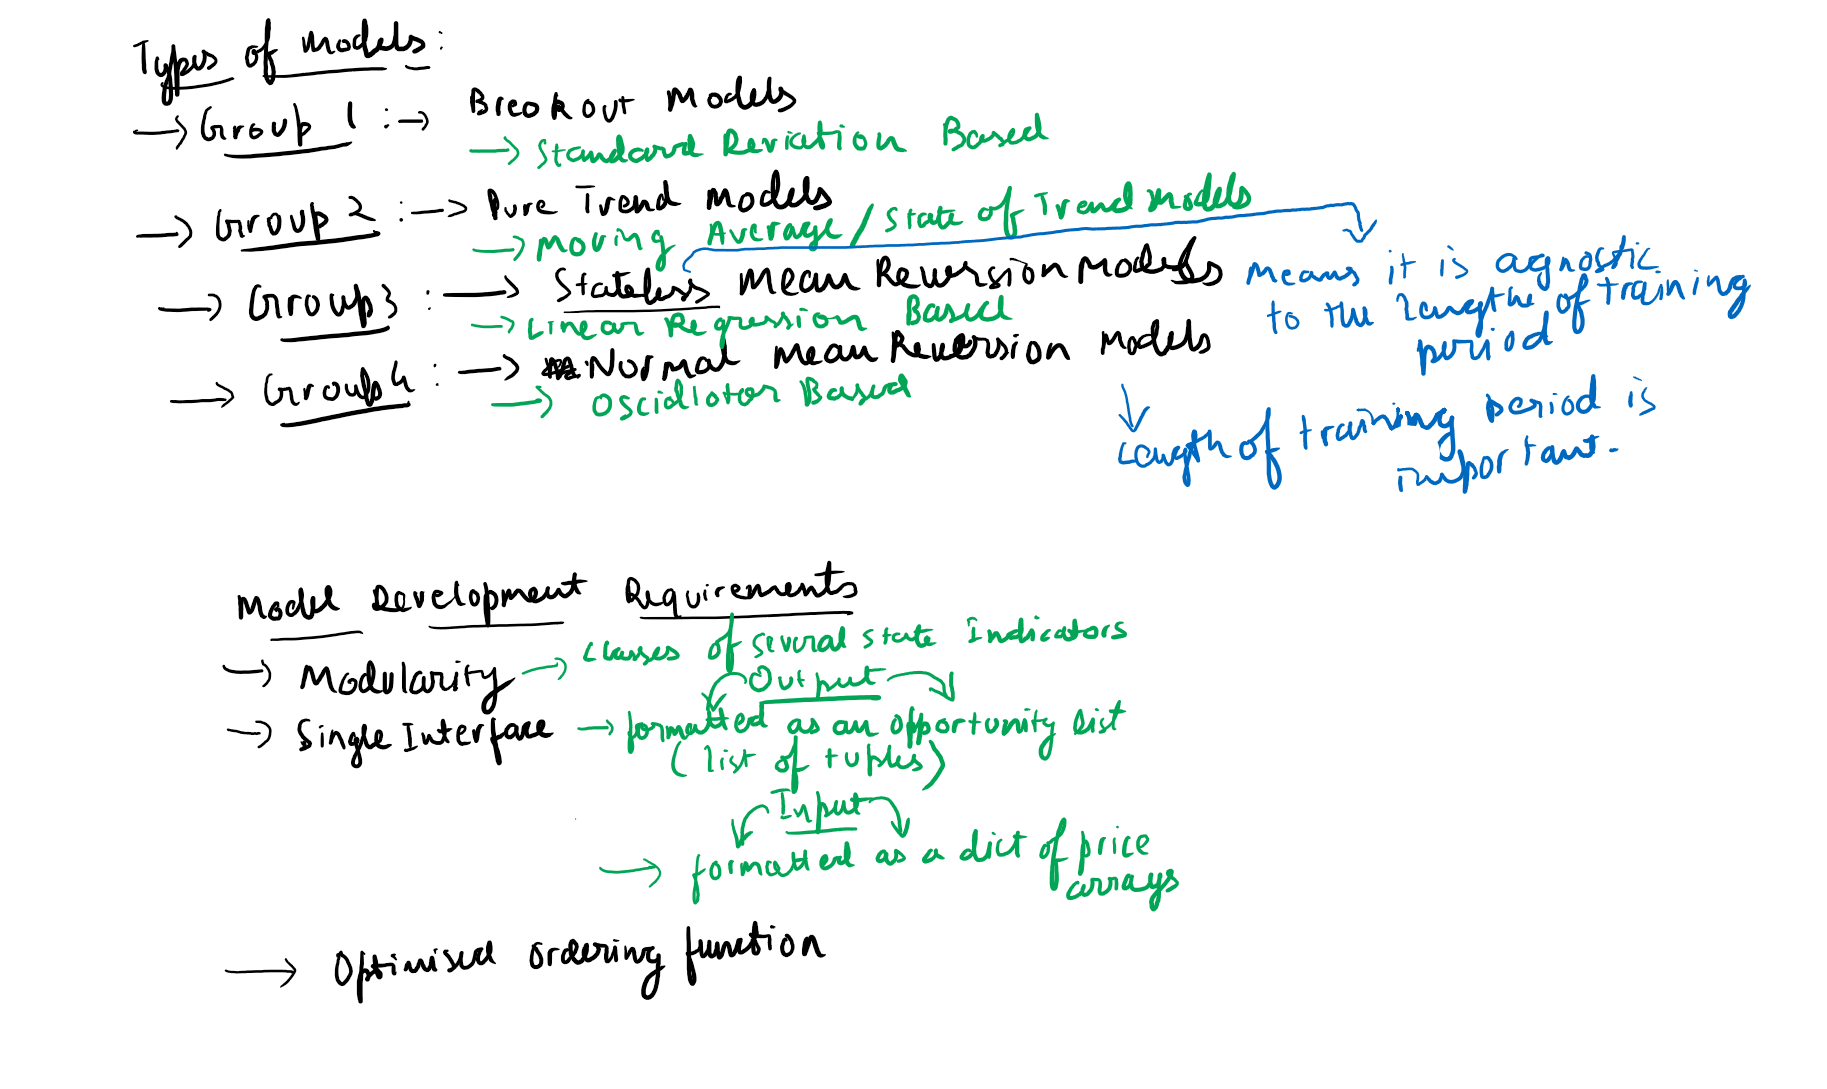 Types of Models:
→ Group 1 :→ Breakout Models
→ Standard Deviation Based
→ Group 2 :→ Pure Trend Models
→ Moving Average / State of Trend Models
→ Group 3 :→ Stateless Mean Reversion Models
Means it is agnostic
to the length of training
period
→ Linear Regression Based
→ Group 4 :→ Normal Mean Reversion Models
→ Oscillator Based
↓
Length of training period is
important.
Model Development Requirements
→ Modularity → Classes of several state Indicators
Output
→ Single Interface → formatted as an opportunity list
(list of tuples)
Input
→ formatted as a dict of price
arrays
→ Optimised ordering function